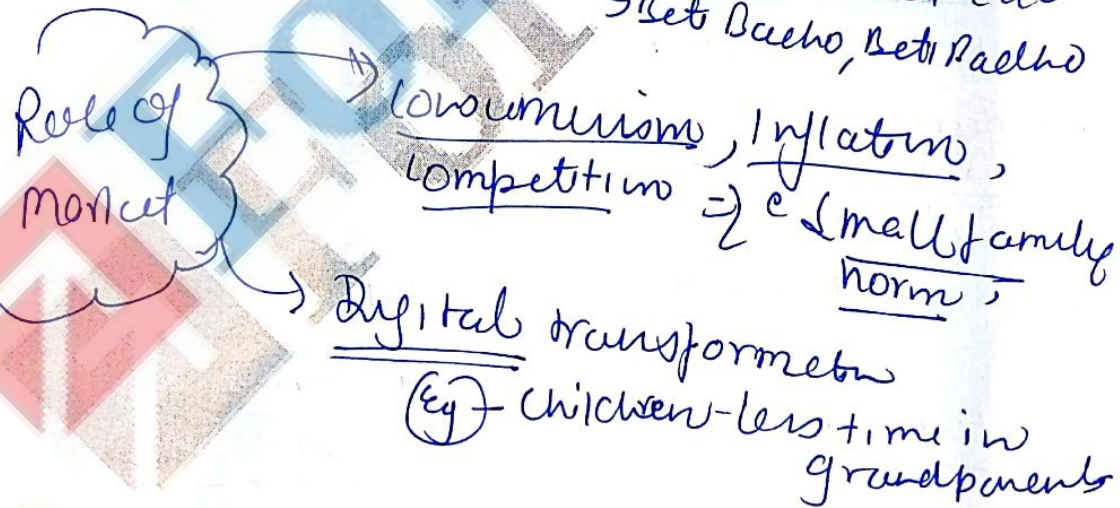 → Beti Bacho, Beti Padho
Role of
market
→ Consumerism, Inflation,
Competition ⇒ "Small family
norm"
→ Digital transformation
(Eg) - Children - less time in
grandparents